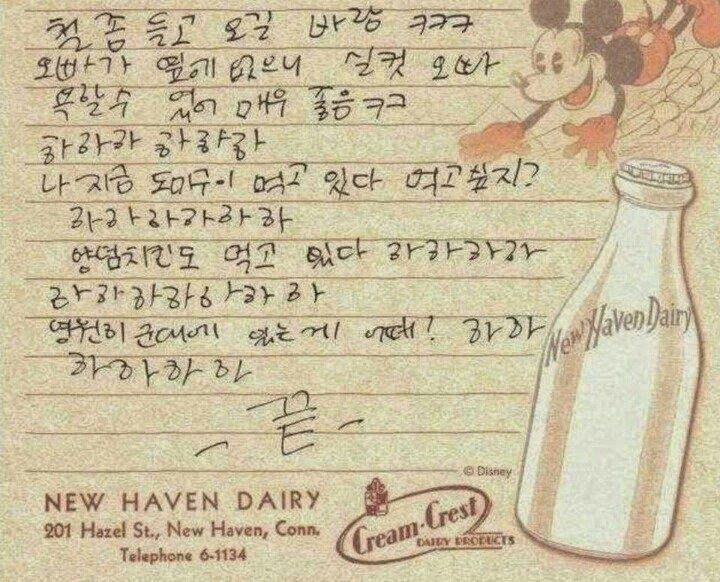 철 좀 들고 오길 바람 ㅋㅋㅋ
오빠가 옆에 없으니 실컷 오빠
욕할수 있어 매우 좋음 ㅋㅋ
하하하 하하하하
나 지금 도미구이 먹고 있다 먹고싶지?
하하하하하하
양념치킨도 먹고 있다 하하하하
하하하하하하하
영원히 군대에 있는게 어때! 하하
하하하하
- 끝 -
New Haven Dairy
© Disney
NEW HAVEN DAIRY
201 Hazel St., New Haven, Conn.
Telephone 6-1134
Cream-Crest
DAIRY PRODUCTS